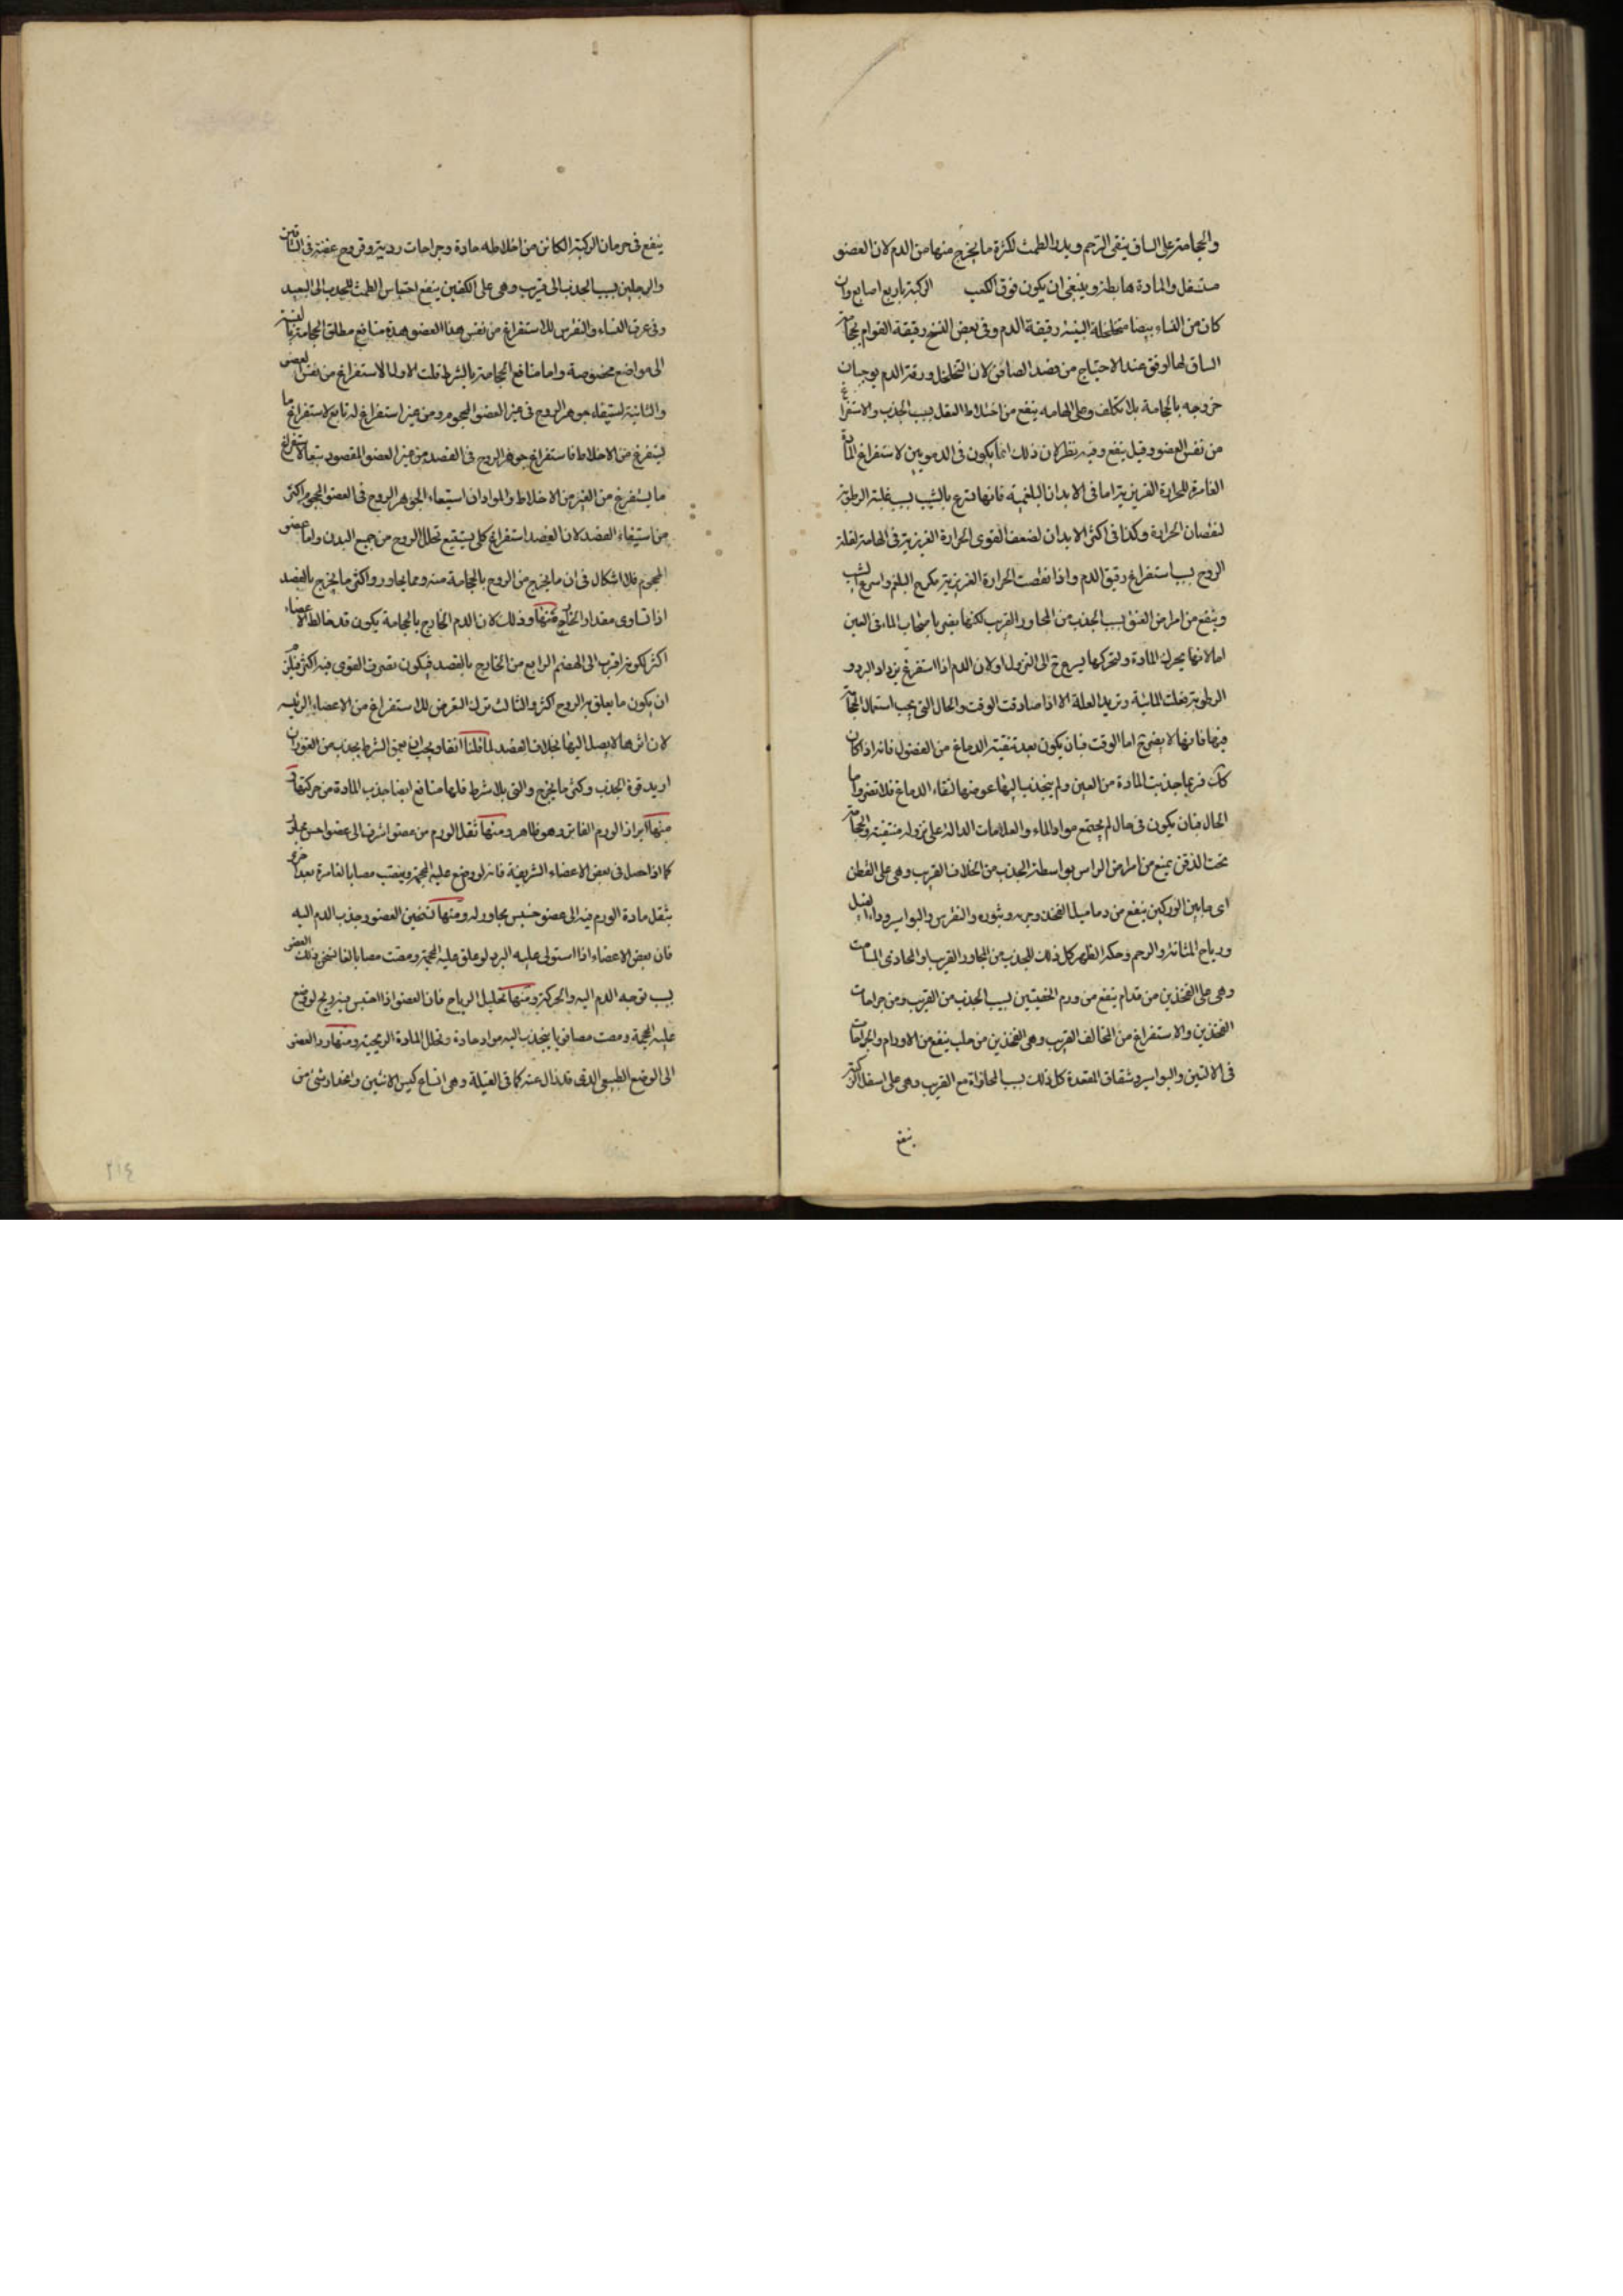 والحجامة على الساق ينقى الرحم ويدر الطمث لكثرة ما يخرج منها من الدم لان العضو
متسفل والمادة هابطة وينبغى ان يكون فوق الكعب الركبة باربع اصابع وان
كان من النساء بيضا متخلخلة البنية رقيقة الدم وفى بعض النسخ رقيقة القوام فحجامة
الساق لها اوفق عند الاحتياج من فصد الصافن لان التخلخل ورقة الدم يوجبان
خروجه بالحجامة بلا تكلف وعلى الهامه ينفع من اختلاط العقل بسبب الجذب والاستفراغ
من نفس العضو وقيل ينفع وفيه نظر لان ذلك انما يكون فى الدمويين لاستفراغ المادة
الغامرة للحرارة الغريزية اما فى الابدان البلغمية فانها تسرع بالشيب بسبب غلبة الرطوبة
لنقصان الحرارة وكذا فى اكثر الابدان لضعف القوى الحرارة الغريزية فى الهامة لقلة
الروح بسبب استفراغ رقيق الدم واذا نقصت الحرارة الغريزية تكرج البلغم واسرع الشيب
وينفع من امراض العنق بسبب الجذب من المجاور القريب لكنها يضر باصحاب الماء فى العين
اما لانها يحرك المادة ولتحركها يسرع ح الى النزول او لان الدم اذا استفرغ يزداد البرد و
الرطوبة فغلت المائية وتزيد العلة الا اذا صادقت الوقت والحال التى يجب استعمال الحجامة
فيها فانها لا يضر ح اما الوقت فبان يكون بعد تنقية الدماغ من الفضول فانه اذا كان
كك فربما جذبت المادة من العين ولم ينجذب اليها عوضها لنقاء الدماغ فلا تضر واما
الحال فبان يكون فى حال لم يجتمع مواد الماء والعلامات الدالة على نزوله منتفية والحجامة
تحت الذقن يمنع من امراض الراس بواسطة الجذب من الخلاف القريب وهى على القطن
اى ما بين الوركين ينفع من دماميل الفخذ وجربه وبثوره والنقرس والبواسير وداء الفيل
ورياح المثانة والرحم وحكة الظهر كل ذلك للجذب من المجاور القريب او المحاذى المسامت
وهى على الفخذين من قدام ينفع من ورم الخصيتين بسبب الجذب من القريب ومن جراحات
الفخذين والاستفراغ من المخالف القريب وهى الفخذين من خلف ينفع من الاورام والخراجات
فى الاليتين والبواسير وشقاق المقعدة كل ذلك بسبب المحاذاة مع القريب وهى على اسفل الركبة
ينفع
ينفع فى ضربان الركبة الكائن من اخلاطه حادة وجراحات رديئة وقروح عفنة فى الساقين
والرجلين بسبب الجذب الى قريب وهى على الكعبين ينفع احتباس الطمث للجذب الى البعيد
وفى عرق النساء والنقرس للاستفراغ من نفس هذا العضو فهذه منافع مطلق الحجامة بالنسبة
الى مواضع مخصوصة واما منافع الحجامة بالشرط فلت الاولى الاستفراغ من نفس العضو
والثانية استيفاء جوهر الروح فى غير العضو المحجوم ومن غير استفراغ له تابع لاستفراغ ما
يستفرغ من الاخلاط فاستفراغ جوهر الروح فى الفصد من غير العضو المقصود يتبع لاستفراغ
ما يستفرغ من الغير من الاخلاط والمواد ان استيفاء الجوهر الروح فى العضو المحجوم اكثر
من استيفاء الفصد لان الفصد استفراغ كلى يستتبع تحلل الروح من جميع البدن واما عضو
المحجوم فلا اشكال فى ان ما يخرج من الروح بالحجامة منه ومما يجاوره اكثر مما يخرج بالفصد
اذا تساوى مقدار الخارج منهما وذلك لان الدم الخارج بالحجامة يكون قد خالط الاعضاء
اكثر لكونه اقرب الى الهضم الرابع من الخارج بالفصد فيكون تصرف القوى فيه اكثر فيلزم
ان يكون ما يعلق به الروح اكثر والثالث ترك التعرض للاستفراغ من الاعضاء الرئيسه
لان اثرها لا يصل اليها بخلاف الفصد لما قلنا انفا ويجب ان يعمق الشرط يجذب من الغور ان
اريد قوة الجذب وكثر ما يخرج والتى بلا شرط فلها منافع ايضا جذب المادة من حركتها
منها ابراز الورم الغائر وهو ظاهر ومنها نقل الورم من عضو اشرف الى عضو اخس مجاور
كما اذا حصل فى بعض الاعضاء الشريفة فانه لو وضع عليه المحجمة ويعقب مصا بالغا مرة بعد اخرى
ينقل مادة الورم فيه الى عضو خسيس مجاور له ومنها تسخين العضو وجذب الدم اليه
فان بعض الاعضاء اذا استولى عليه البرد لو علق عليه المحجمة ومصت مصا بالغا تسخن ذلك العضو
بسبب توجه الدم اليه والحركة ومنها تحليل الرياح فان العضو اذا احتبس فيه ريح لو وضع
عليه المحجمة ومصت مصا قويا ينجذب اليه مواد حادة وتحلل المادة الريحية ومنها رد العضو
الى الوضع الطبيعى الذى قد زال عنه كما فى القيلة وهى اتساع كيس الانثيين وانحدار شئ من
٢١٤